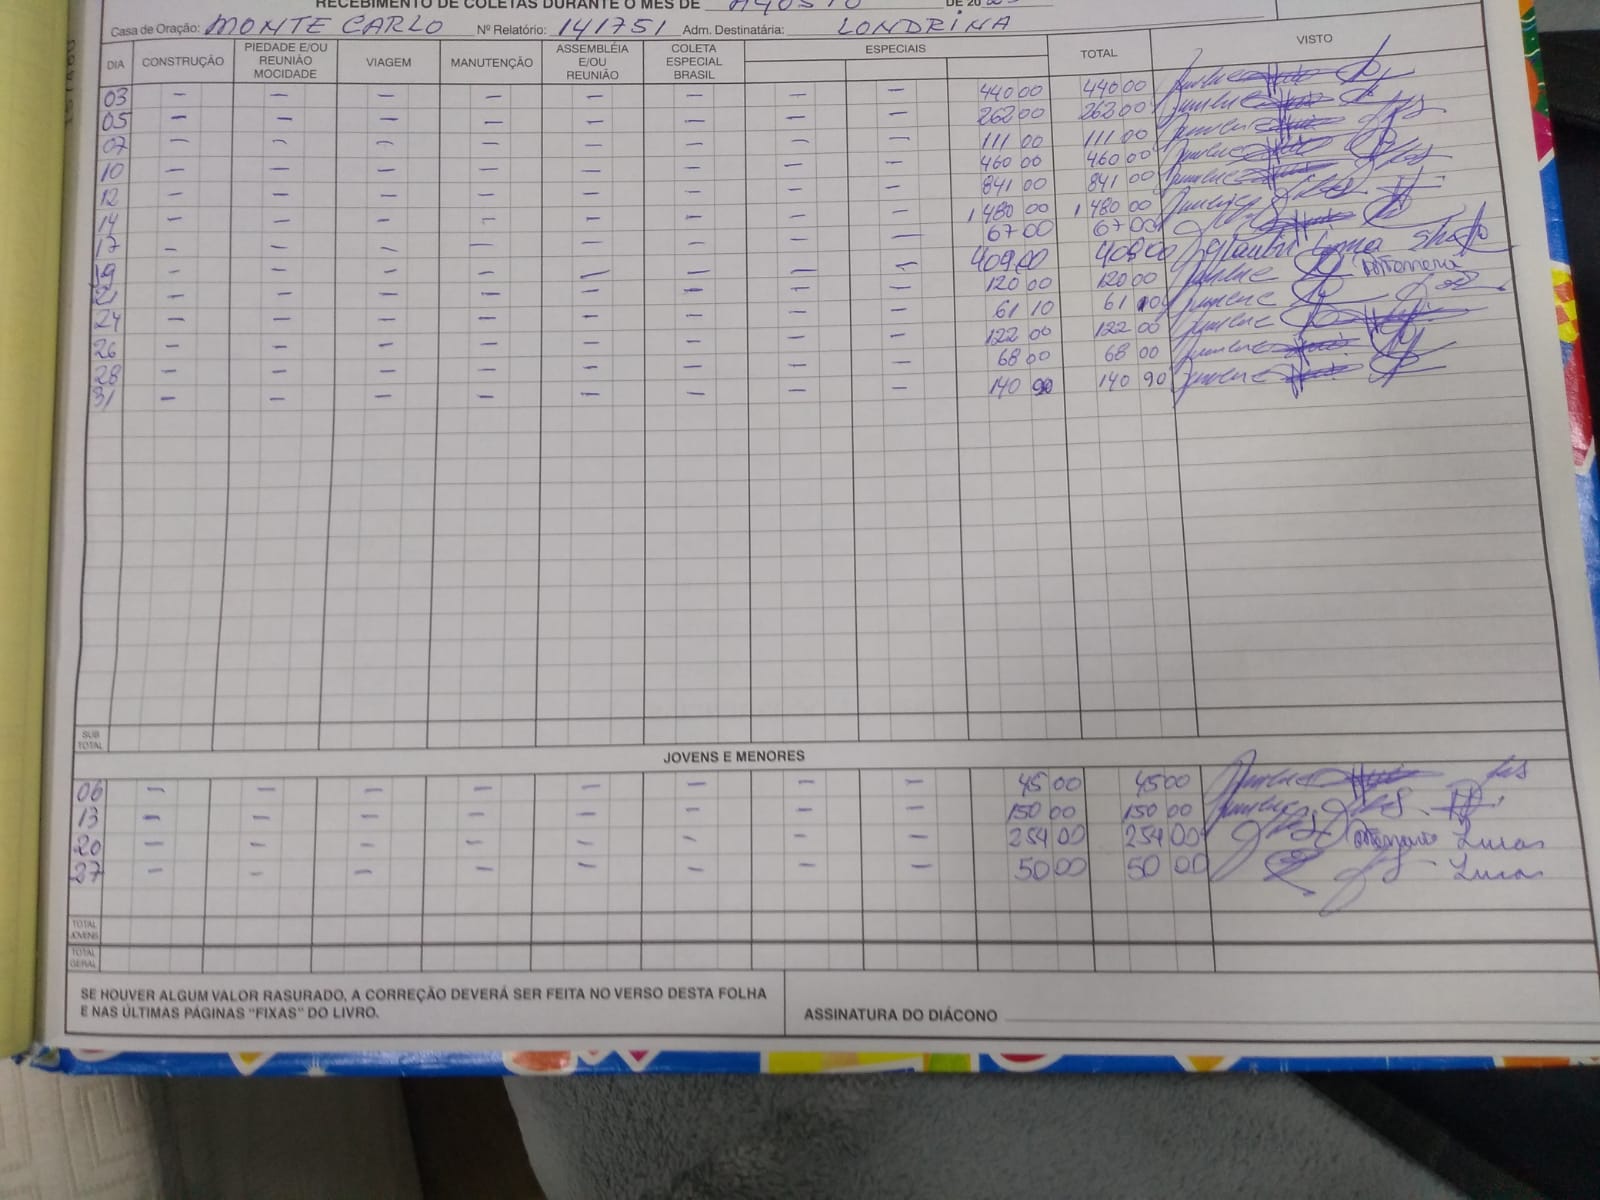 RECEBIMENTO DE COLETAS DURANTE O MÊS DE AGOSTO DE 20
Casa de Oração: MONTE CARLO Nº Relatório: 141751 Adm. Destinatária: LONDRINA
DIA CONSTRUÇÃO PIEDADE E/OU REUNIÃO MOCIDADE VIAGEM MANUTENÇÃO ASSEMBLÉIA E/OU REUNIÃO COLETA ESPECIAL BRASIL ESPECIAIS TOTAL VISTO
03 — — — — — — — — 440 00 440 00
05 — — — — — — — — 262 00 262 00
07 — — — — — — — — 111 00 111 00
10 — — — — — — — — 460 00 460 00
12 — — — — — — — — 841 00 841 00
14 — — — — — — — — 1 480 00 1 480 00
17 — — — — — — — — 67 00 67 00
19 — — — — — — — — 409 00 409 00
21 — — — — — — — — 120 00 120 00
24 — — — — — — — — 61 10 61 10
26 — — — — — — — — 122 00 122 00
28 — — — — — — — — 68 00 68 00
31 — — — — — — — — 140 90 140 90
SUB TOTAL
JOVENS E MENORES
06 — — — — — — — — 45 00 45 00
13 — — — — — — — — 150 00 150 00
20 — — — — — — — — 254 00 254 00 Lucas
27 — — — — — — — — 50 00 50 00 Lucas
TOTAL JOVENS
TOTAL GERAL
SE HOUVER ALGUM VALOR RASURADO, A CORREÇÃO DEVERÁ SER FEITA NO VERSO DESTA FOLHA
E NAS ÚLTIMAS PÁGINAS "FIXAS" DO LIVRO.
ASSINATURA DO DIÁCONO